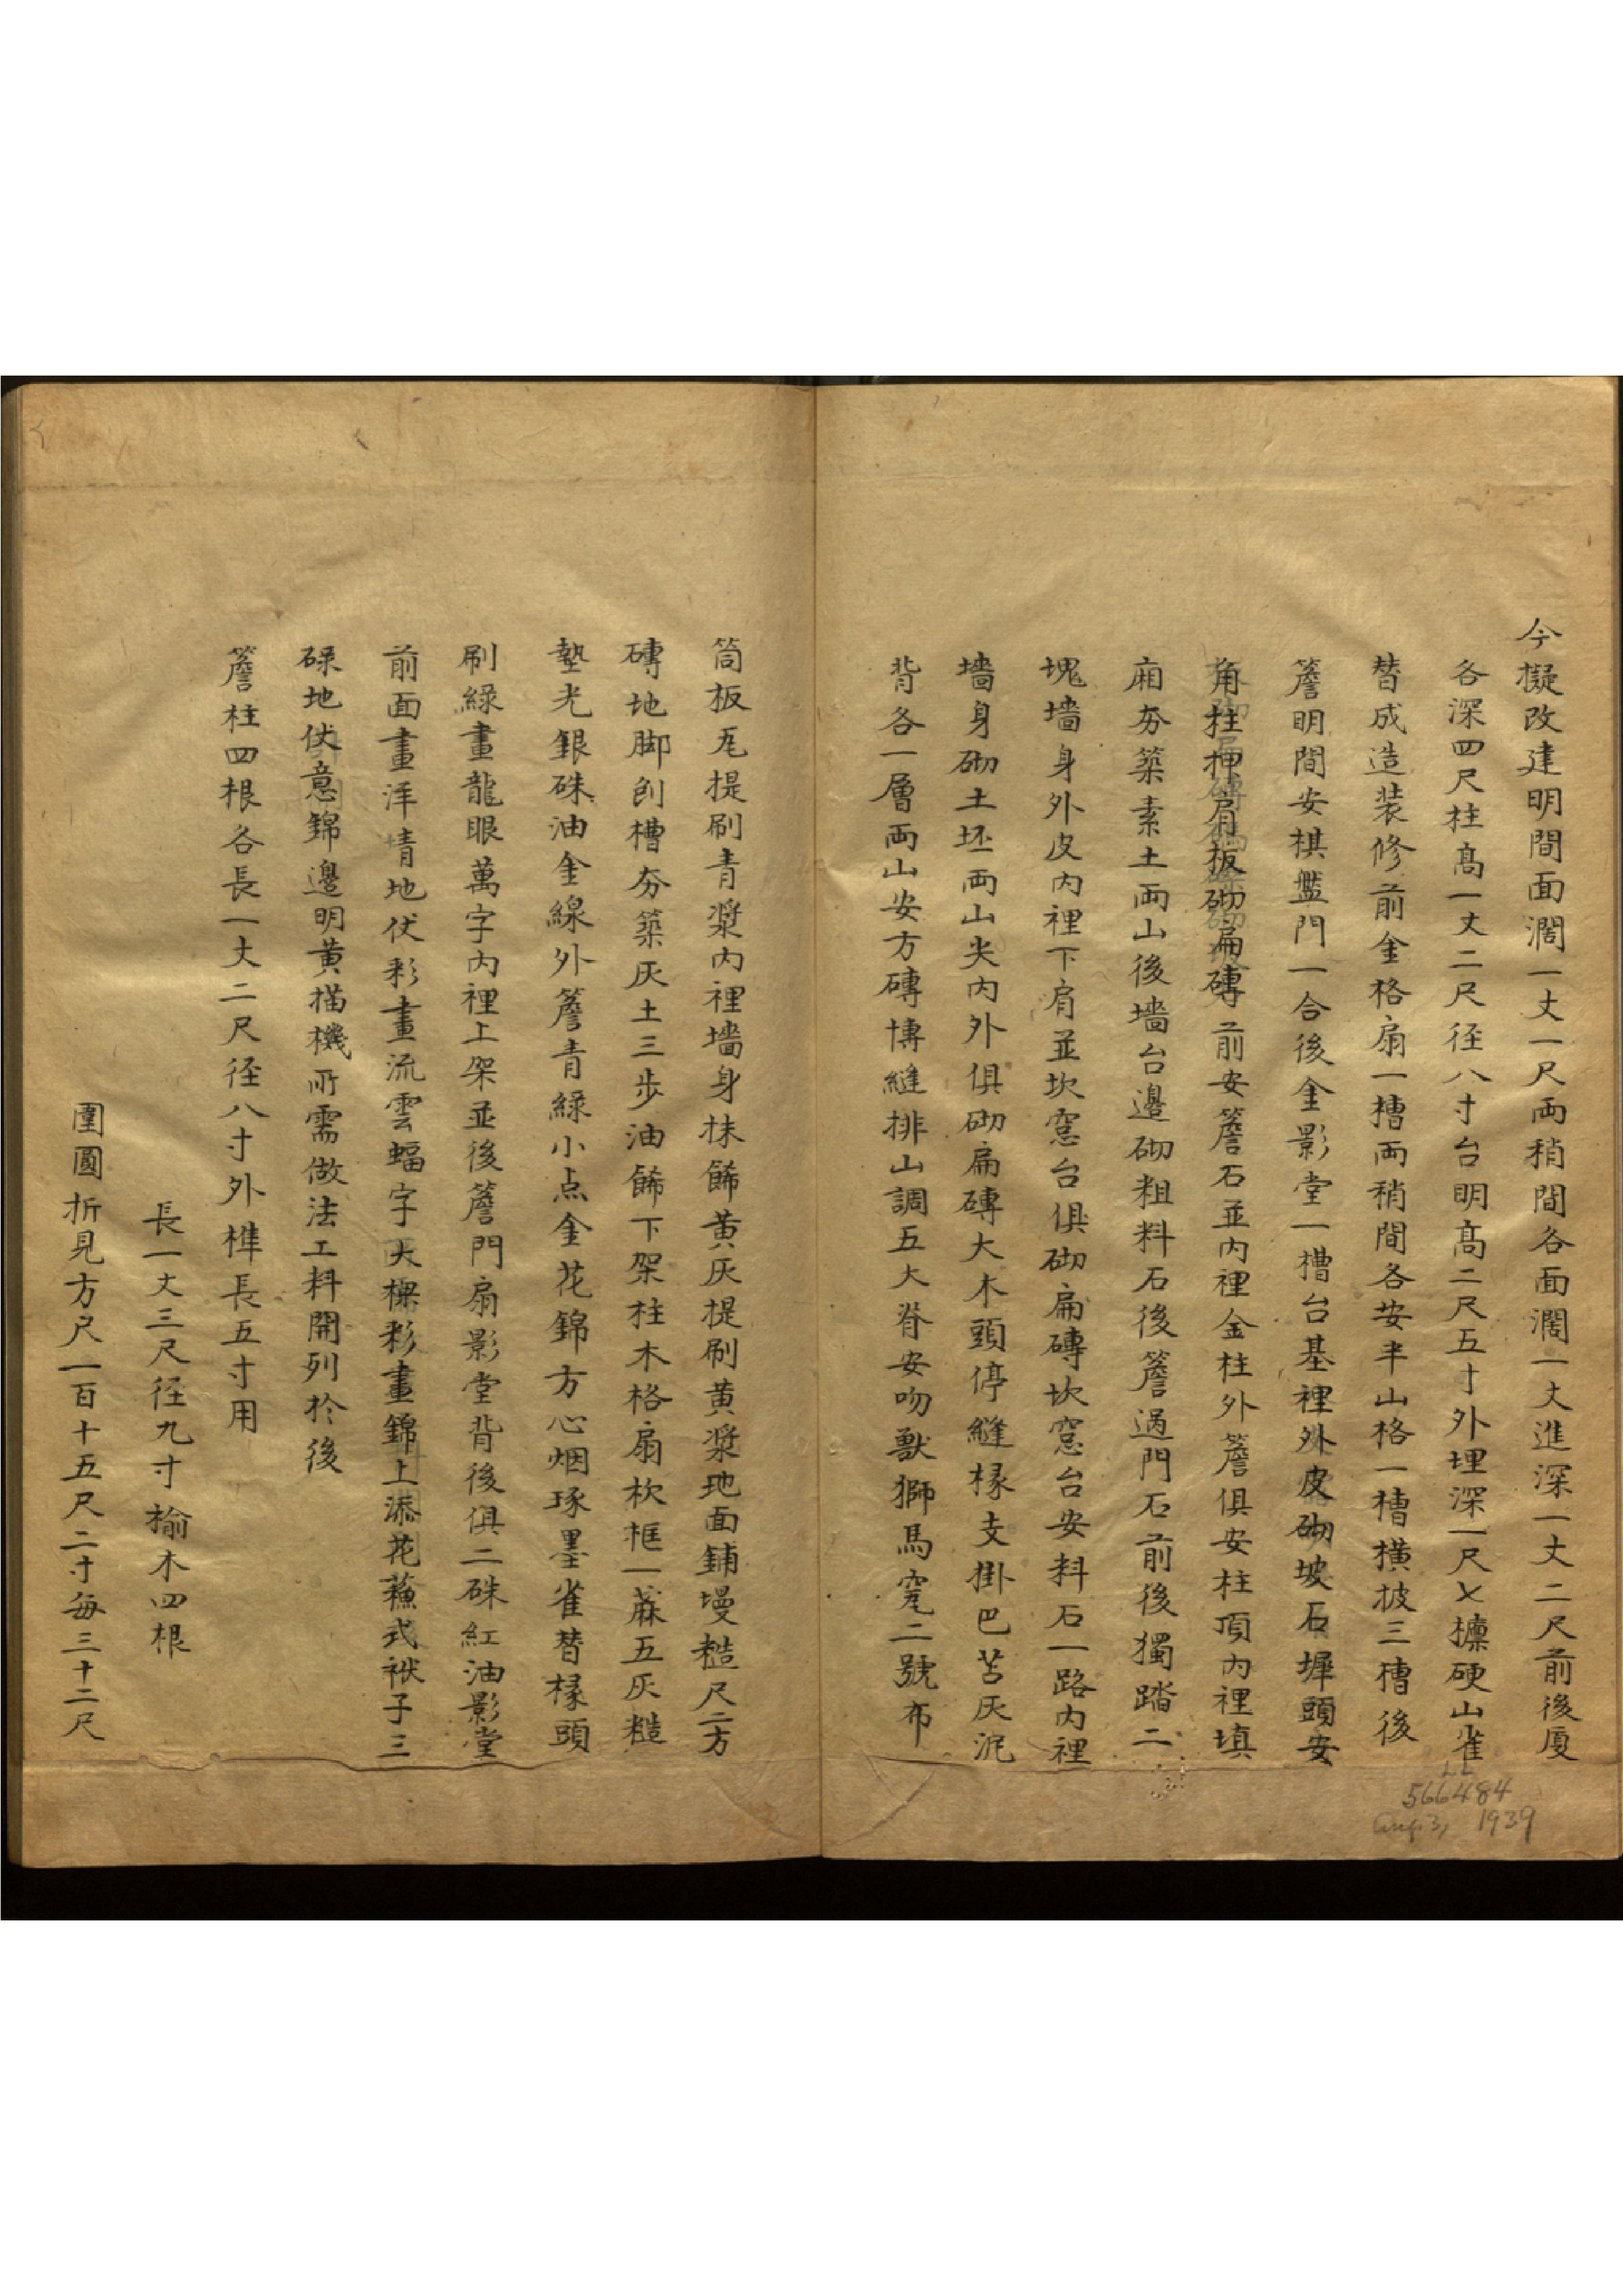 今擬改建明間面濶一丈一尺両稍間各面濶一丈進深一丈二尺前後廈
各深四尺柱髙一丈二尺径八寸台明髙二尺五寸外埋深一尺七檩硬山雀
替成造装修前金格扇一槽両稍間各安半山格一槽横披三槽後
簷明間安棋盤門一合後金影堂一槽台基裡外皮砌坡石墀頭安
角柱押肩板砌扁磚前安簷石並内裡金柱外簷俱安柱頂内裡填
廂夯築素土両山後墻台邊砌粗料石後簷過門石前後獨踏二
塊墻身外皮内裡下肩並坎窓台俱砌扁磚坎窓台安料石一路内裡
墻身砌土坯両山尖内外俱砌扁磚大木頭停縫椽支掛巴苫灰泥
背各一層両山安方磚博縫排山調五大脊安吻獸獅馬寛二號布
筒板瓦提刷青漿内裡墻身抹餙黄灰提刷黄漿地面鋪墁糙尺二方
磚地脚刨槽夯築灰土三步油餙下架柱木格扇杴框一蔴五灰糙
墊光銀硃油金線外簷青緑小点金花錦方心烟琢墨雀替椽頭
刷緑畫龍眼萬字内裡上架並後簷門扇影堂背後俱二硃紅油影堂
前面畫洋靑地伏彩畫流雲蝠字天樑彩畫錦上添花蘓式袱子三
碌地仗意錦邊明黄描機所需做法工料開列於後
簷柱四根各長一丈二尺径八寸外榫長五寸用
長一丈三尺径九寸榆木四根
圍圓折見方尺一百十五尺二寸每三十二尺
LL
566484
Aug. 3, 1939